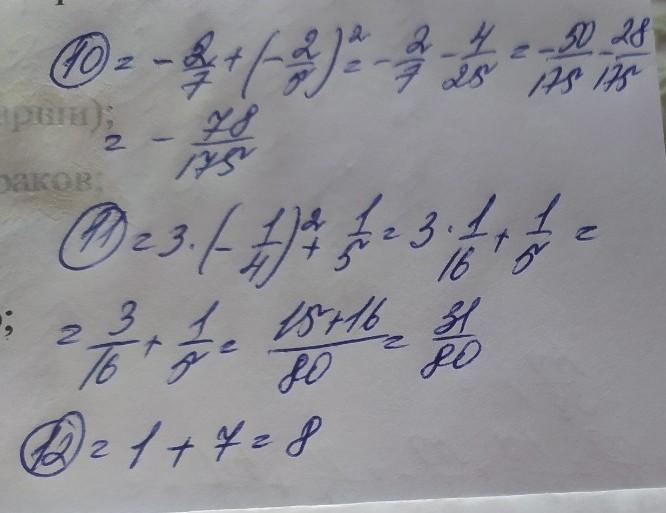 р
⑩ = - 2/7 + (- 2/5)² = - 2/7 - 4/25 = - 50/175 - 28/175
= - 78/175
арии);
раков;
⑪ = 3 · (- 1/4)² + 1/5 = 3 · 1/16 + 1/5 =
;
= 3/16 + 1/5 = 15+16/80 = 31/80
⑫ = 1 + 7 = 8